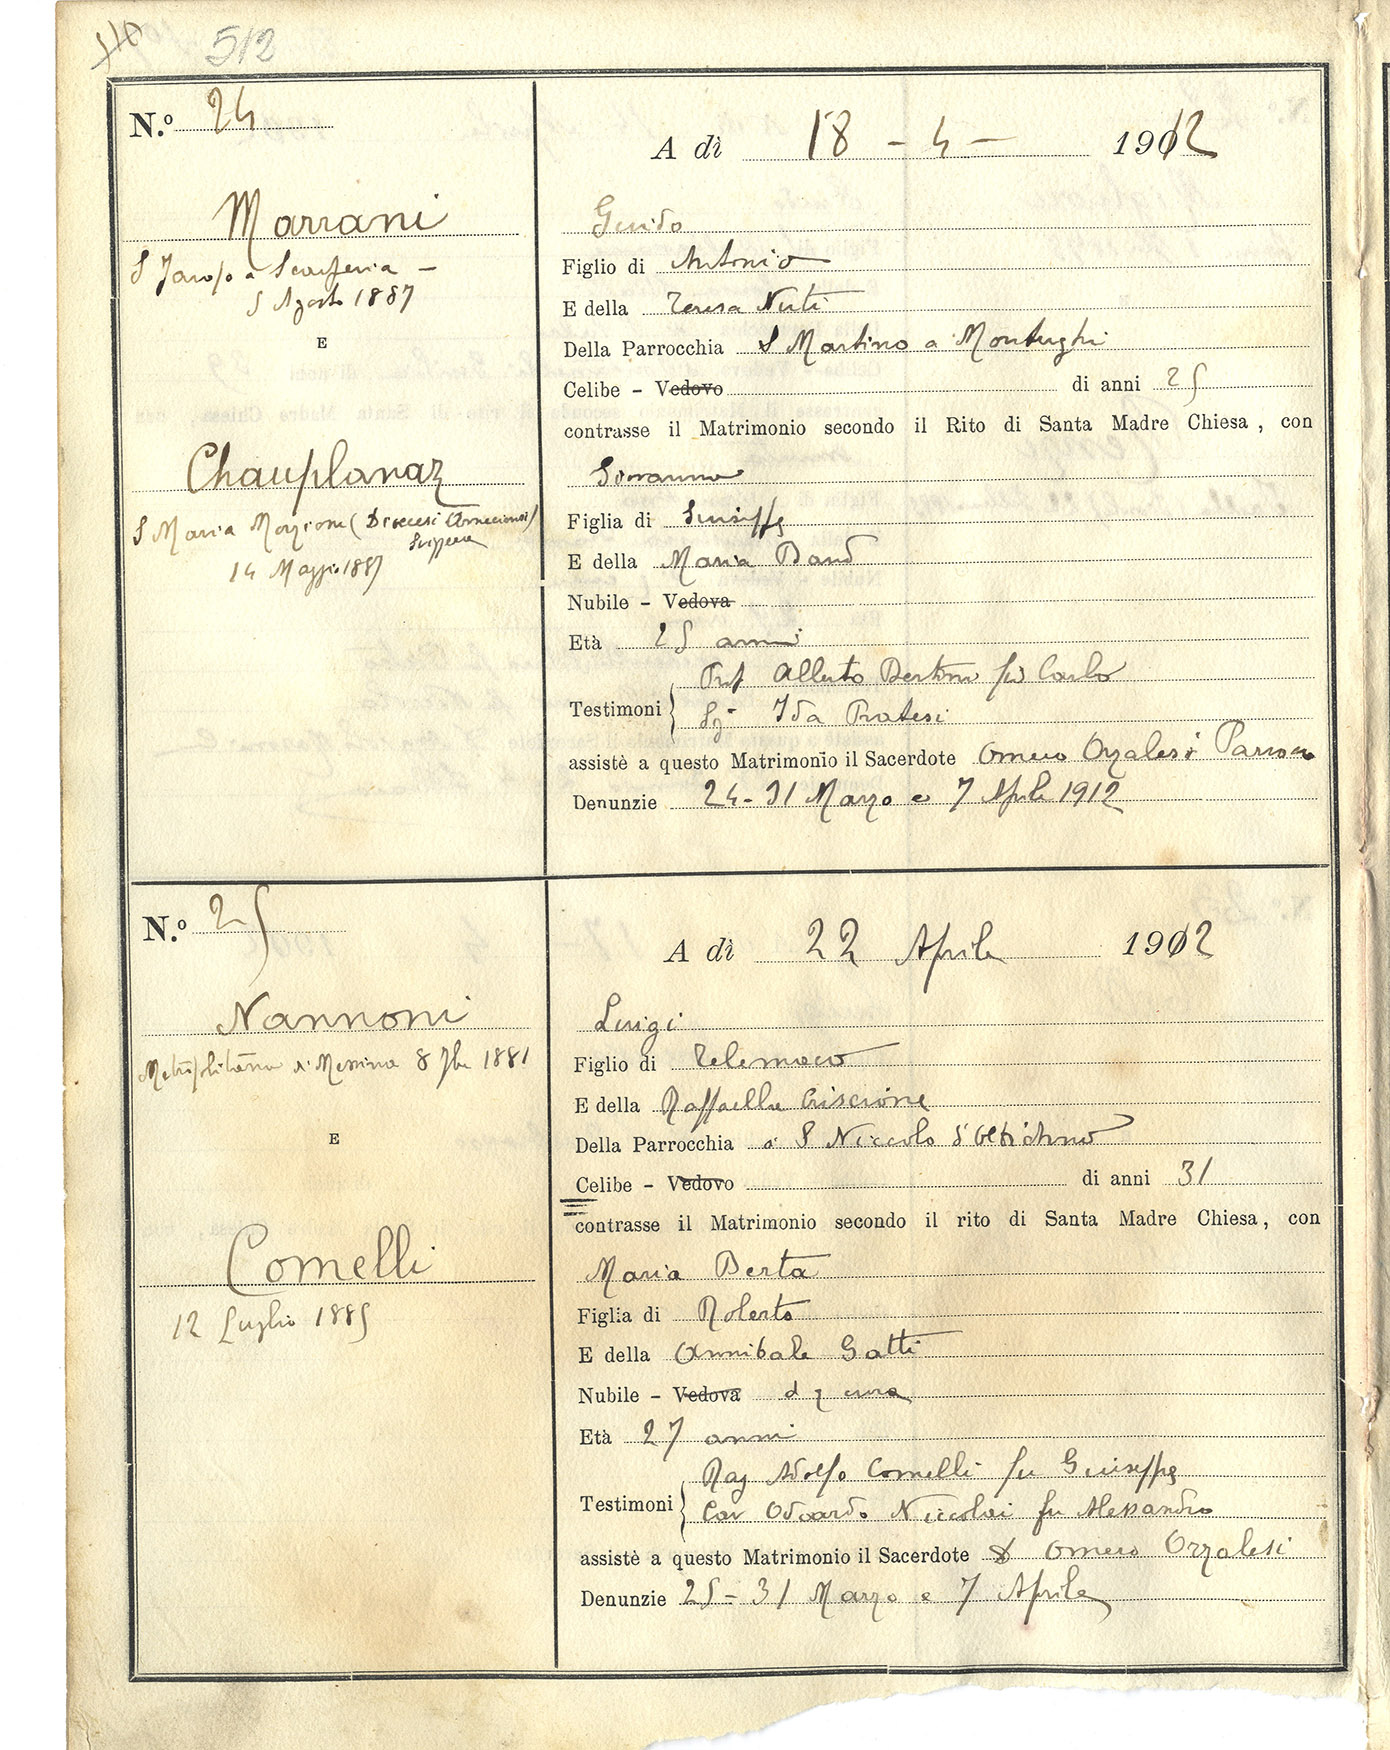 512
N.º 24
A dì 18 - 4 - 1912
Marrani
S Jacopo a Scarperia -
5 Agosto 1887
E
Chauplanaz
S Maria (Diocesi
Svizzera
14 Maggio 1887
Guido
Figlio di Antonio
E della Teresa Nuti
Della Parrocchia S Martino a Montughi
Celibe - Vedovo di anni 25
contrasse il Matrimonio secondo il Rito di Santa Madre Chiesa, con
Giovanna
Figlia di Giuseppe
E della Maria Band
Nubile - Vedova
Età 25 anni
Testimoni Prof Alberto Bertoni fu Carlo
Sig Ida Pratesi
assistè a questo Matrimonio il Sacerdote Omero Orzalesi Parroco
Denunzie 24-31 Marzo e 7 Aprile 1912
N.º 25
A dì 22 Aprile 1912
Nannoni
Metropolitana di Messina 8 7bre 1881
E
Comelli
12 Luglio 1885
Luigi
Figlio di Telemaco
E della Raffaella Criscione
Della Parrocchia a S Niccolò
Celibe - Vedovo di anni 31
contrasse il Matrimonio secondo il rito di Santa Madre Chiesa, con
Maria Berta
Figlia di Roberto
E della Annibale Gatti
Nubile - Vedova d q cura
Età 27 anni
Testimoni Rag Adolfo Comelli fu Giuseppe
Cav Odoardo Niccolai fu Alessandro
assistè a questo Matrimonio il Sacerdote D Omero Orzalesi
Denunzie 25-31 Marzo e 7 Aprile